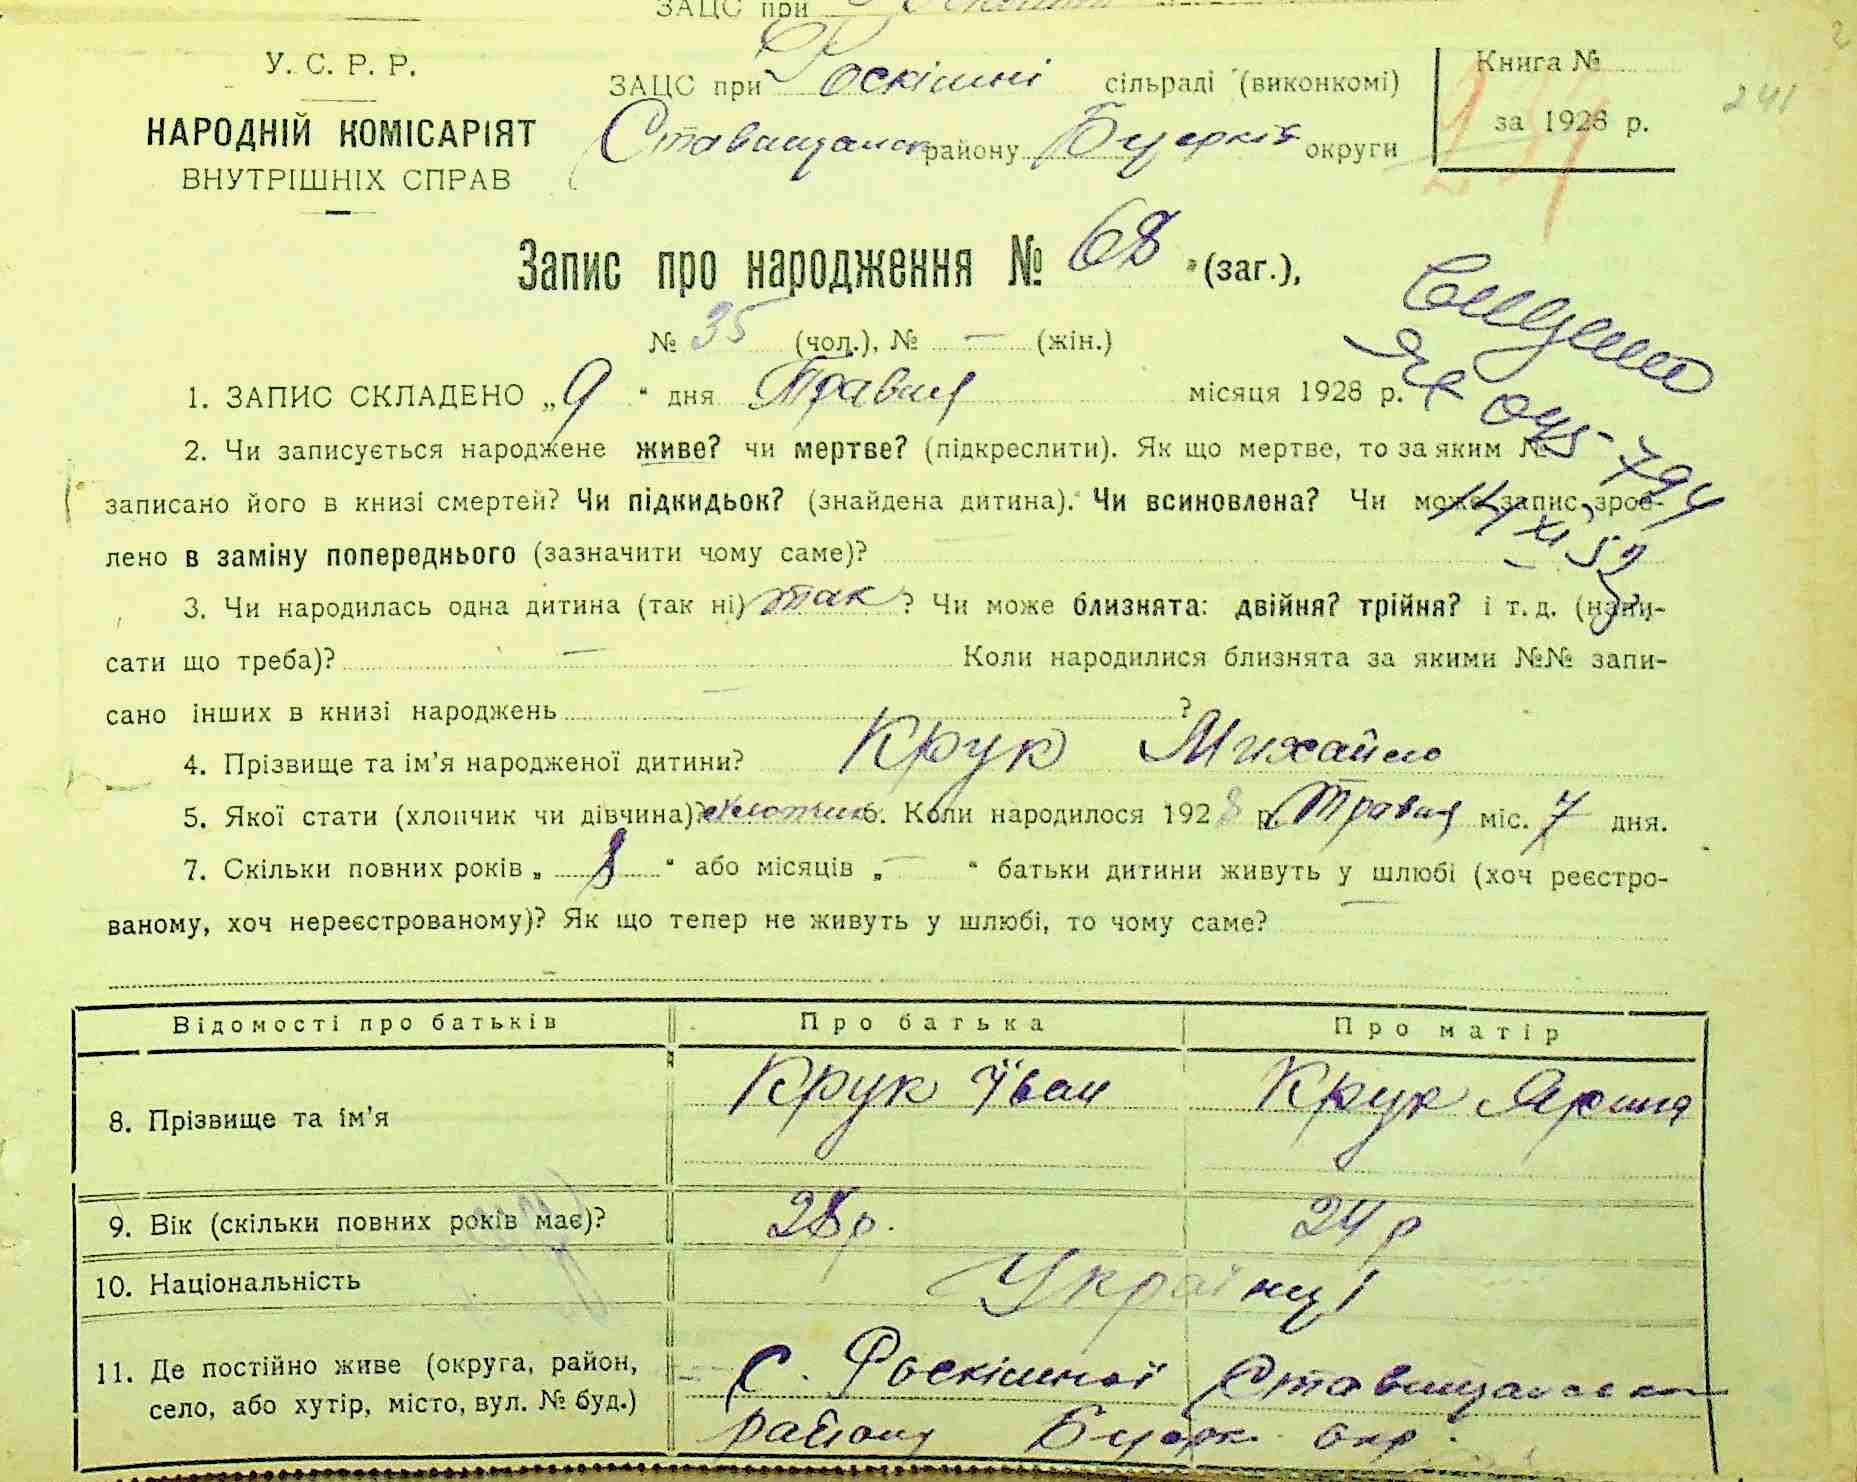 ЗАЦС при
У. С. Р. Р.
НАРОДНІЙ КОМІСАРІЯТ
ВНУТРІШНІХ СПРАВ
ЗАЦС при Роскішні сільраді (виконкомі)
району округи
Книга №
за 1928 р.
241
Запис про народження № 68 (заг.),
№ 35 (чол.), № — (жін.)
1. ЗАПИС СКЛАДЕНО „9“ дня Травня місяця 1928 р.
2. Чи записується народжене живе? чи мертве? (підкреслити). Як що мертве, то за яким №
записано його в книзі смертей? Чи підкидьок? (знайдена дитина). Чи всиновлена? Чи може запис зроб-
лено в заміну попереднього (зазначити чому саме)?
3. Чи народилась одна дитина (так ні) так? Чи може близнята: двійня? трійня? і т. д. (напи-
сати що треба)? — Коли народилися близнята за якими №№ запи-
сано інших в книзі народжень — ?
4. Прізвище та ім'я народженої дитини? Крук Михайло
5. Якої стати (хлопчик чи дівчина)? хлопчик 6. Коли народилося 1928 р. Травня міс. 7 дня.
7. Скільки повних років „8“ або місяців „—“ батьки дитини живуть у шлюбі (хоч реєстро-
ваному, хоч нереєстрованому)? Як що тепер не живуть у шлюбі, то чому саме?
Відомості про батьків Про батька Про матір
8. Прізвище та ім'я Крук Іван Крук Ярина
9. Вік (скільки повних років має)? 28 р. 24 р
10. Національність Українці
11. Де постійно живе (округа, район, с. Роскішної
село, або хутір, місто, вул. № буд.) району окр.